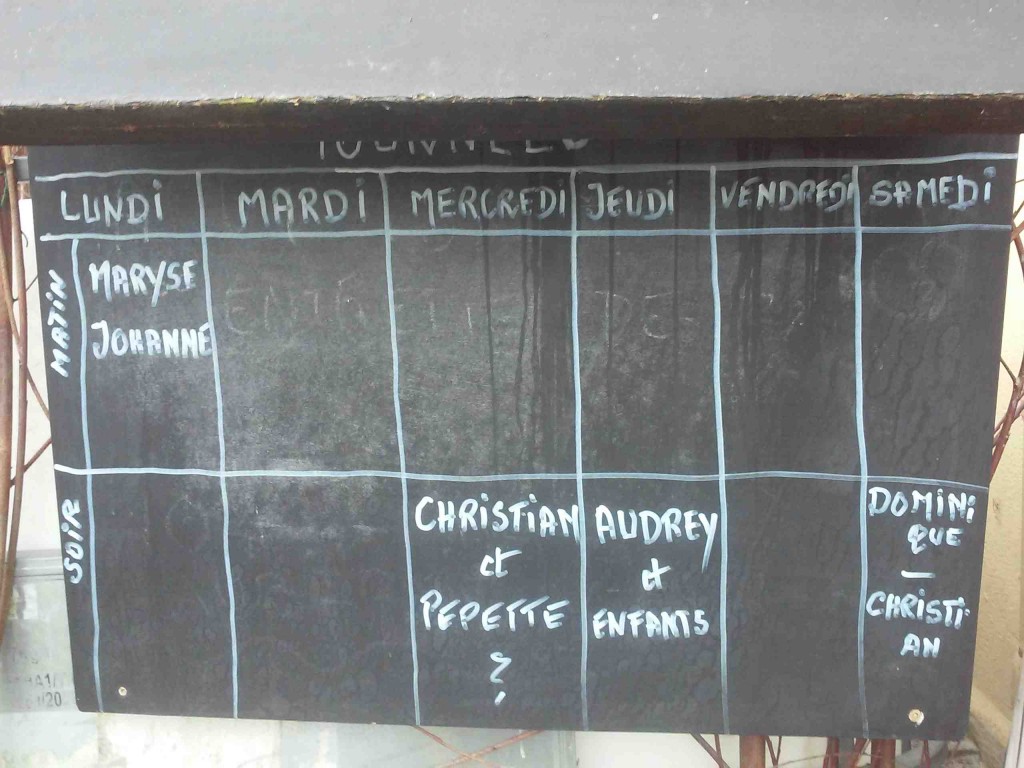 LUNDI MARDI MERCREDI JEUDI VENDREDI SAMEDI
MATIN
MARYSE
JOHANNE
SOIR
CHRISTIAN
et
PEPETTE
?
AUDREY
et
ENFANTS
DOMINI
QUE
—
CHRISTI-
AN